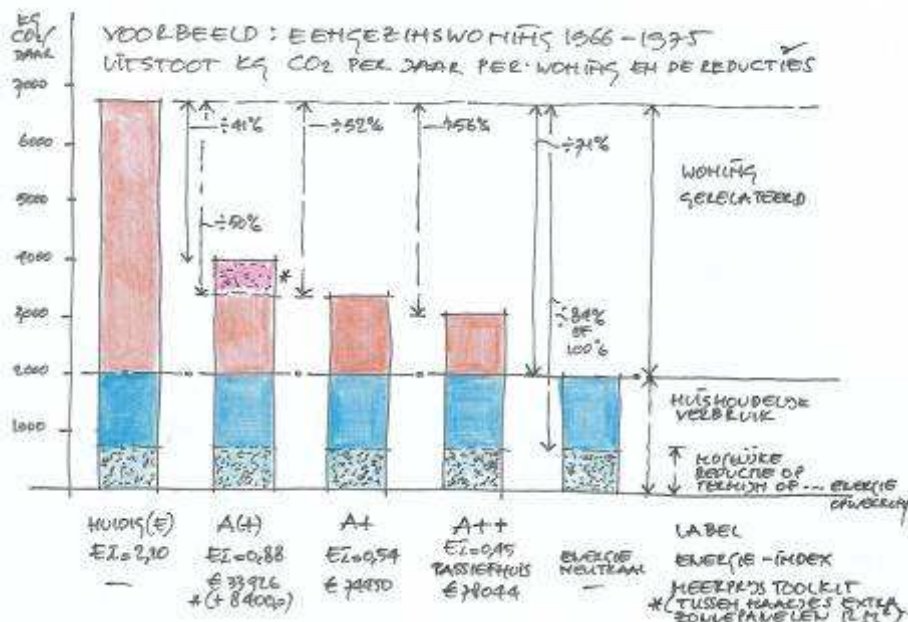 KG
CO2/
JAAR
VOORBEELD : EENGEZINSWONING 1966-1975
UITSTOOT KG CO2 PER JAAR PER WONING EN DE REDUCTIES
7000
6000
5000
4000
3000
2000
1000
÷41%
÷50%
*
÷52%
÷56%
÷71%
÷84%
OF
100%
WONING
GERELATEERD
HUISHOUDELIJK
VERBRUIK
MOGELIJKE
REDUCTIE OP
TERMIJN OF ... ENERGIE
HUIDIG(E)
EI=2,10
—
A(+)
EI=0,88
€33926
*(+8400,-)
A+
EI=0,54
€74950
A++
EI=0,45
PASSIEFHUIS
€78044
ENERGIE
NEUTRAAL
—
LABEL
ENERGIE-INDEX
MEERPRIJS TOOLKIT
*(TUSSEN HAAKJES EXTRA
ZONNEPANELEN 12 M²)